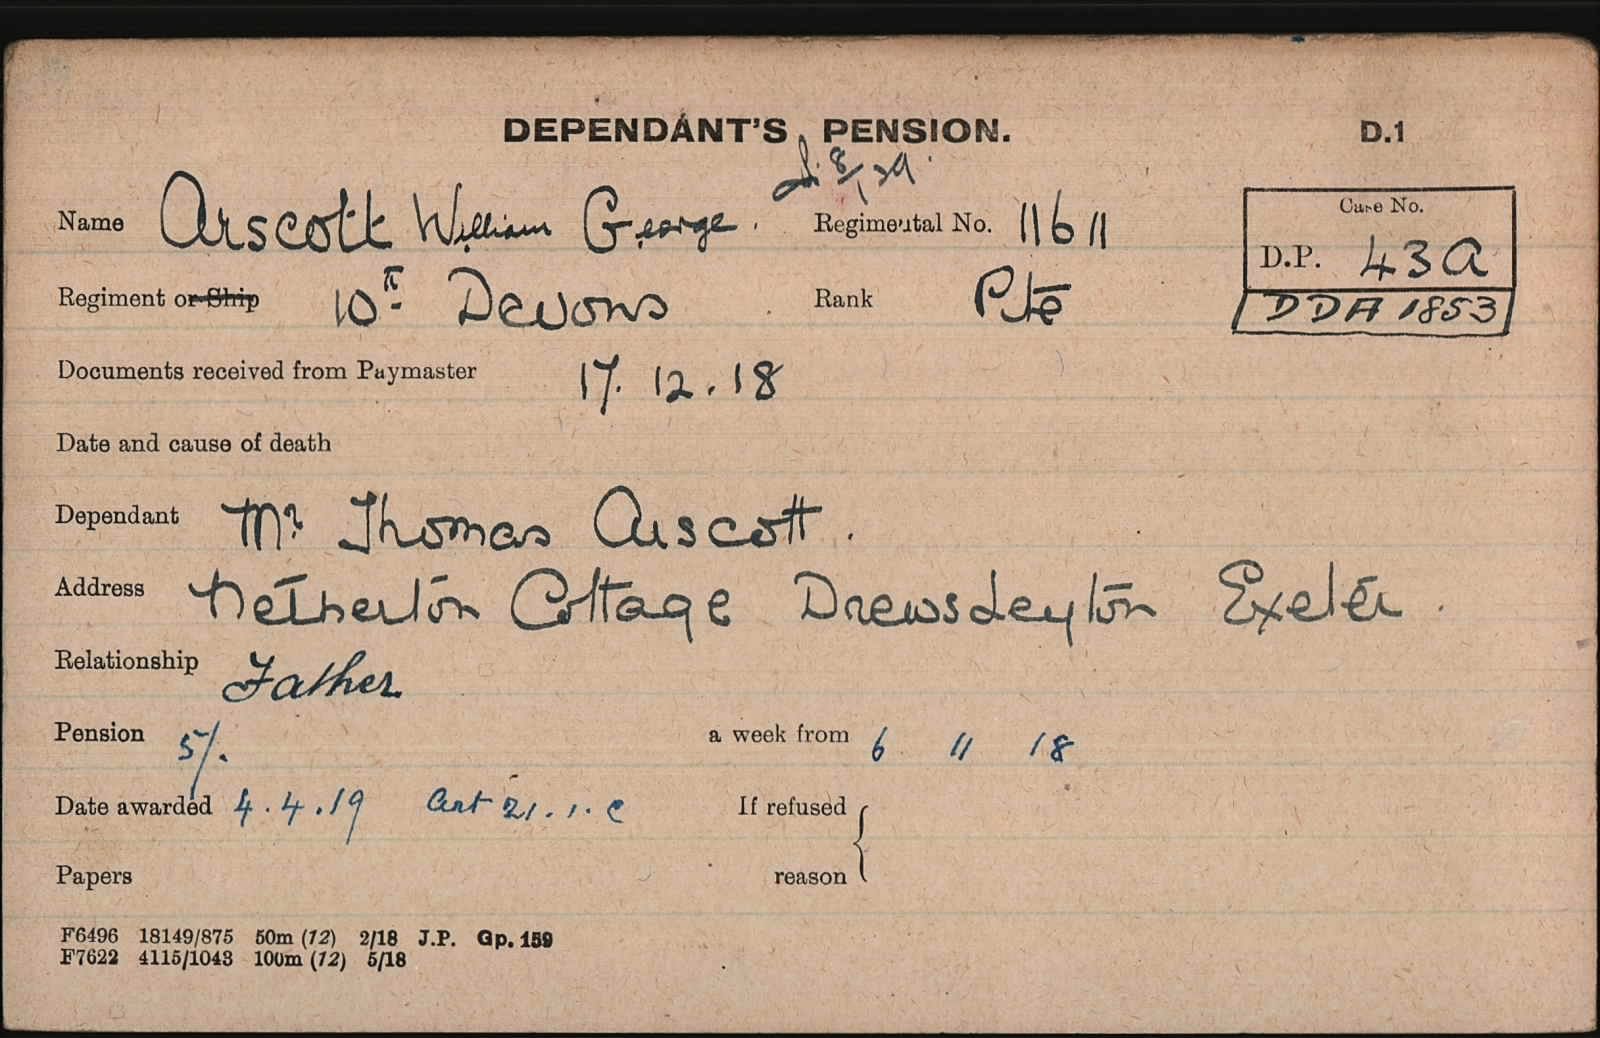 DEPENDANT'S PENSION. D.1
Name Arscott William George. Regimental No. 11611
Case No.
D.P. 43A
Regiment or Ship 10th Devons Rank Pte
DDA 1853
Documents received from Paymaster 17.12.18
Date and cause of death
Dependant Mr Thomas Arscott.
Address Netherton Cottage Drewsteyton Exeter.
Relationship Father
Pension 5/. a week from 6 11 18
Date awarded 4.4.19 Art 21.1.c If refused
Papers reason
F6496 18149/875 50m (12) 2/18 J.P. Gp. 159
F7622 4115/1043 100m (12) 5/18